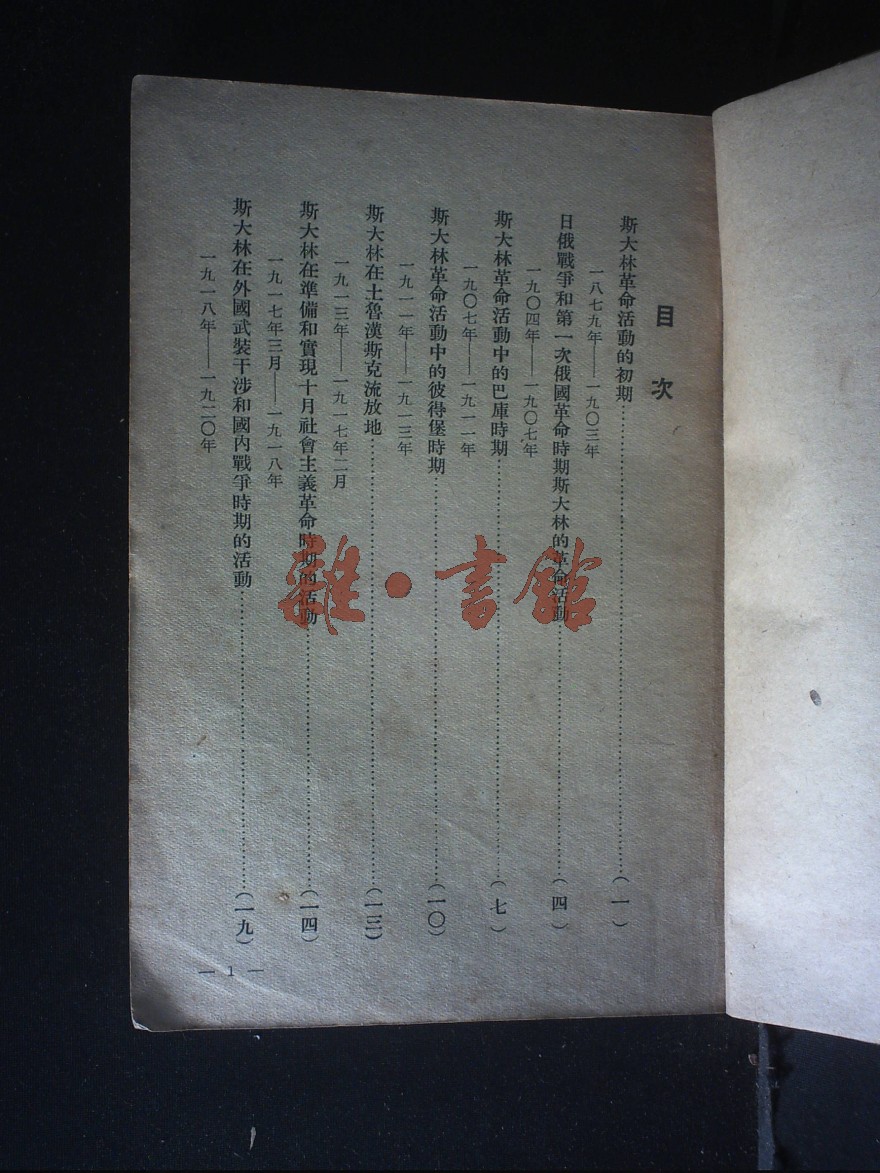 目次
斯大林革命活動的初期……(一)
一八七九年——一九〇三年
日俄戰爭和第一次俄國革命時期斯大林的革命活動……(四)
一九〇四年——一九〇七年
斯大林革命活動中的巴庫時期……(七)
一九〇七年——一九一一年
斯大林革命活動中的彼得堡時期……(一〇)
一九一一年——一九一三年
斯大林在土魯漢斯克流放地……(一三)
一九一三年——一九一七年二月
斯大林在準備和實現十月社會主義革命時期的活動……(一四)
一九一七年三月——一九一八年
斯大林在外國武裝干涉和國內戰爭時期的活動……(一九)
一九一八年——一九二〇年
— 1 —
雜·書館